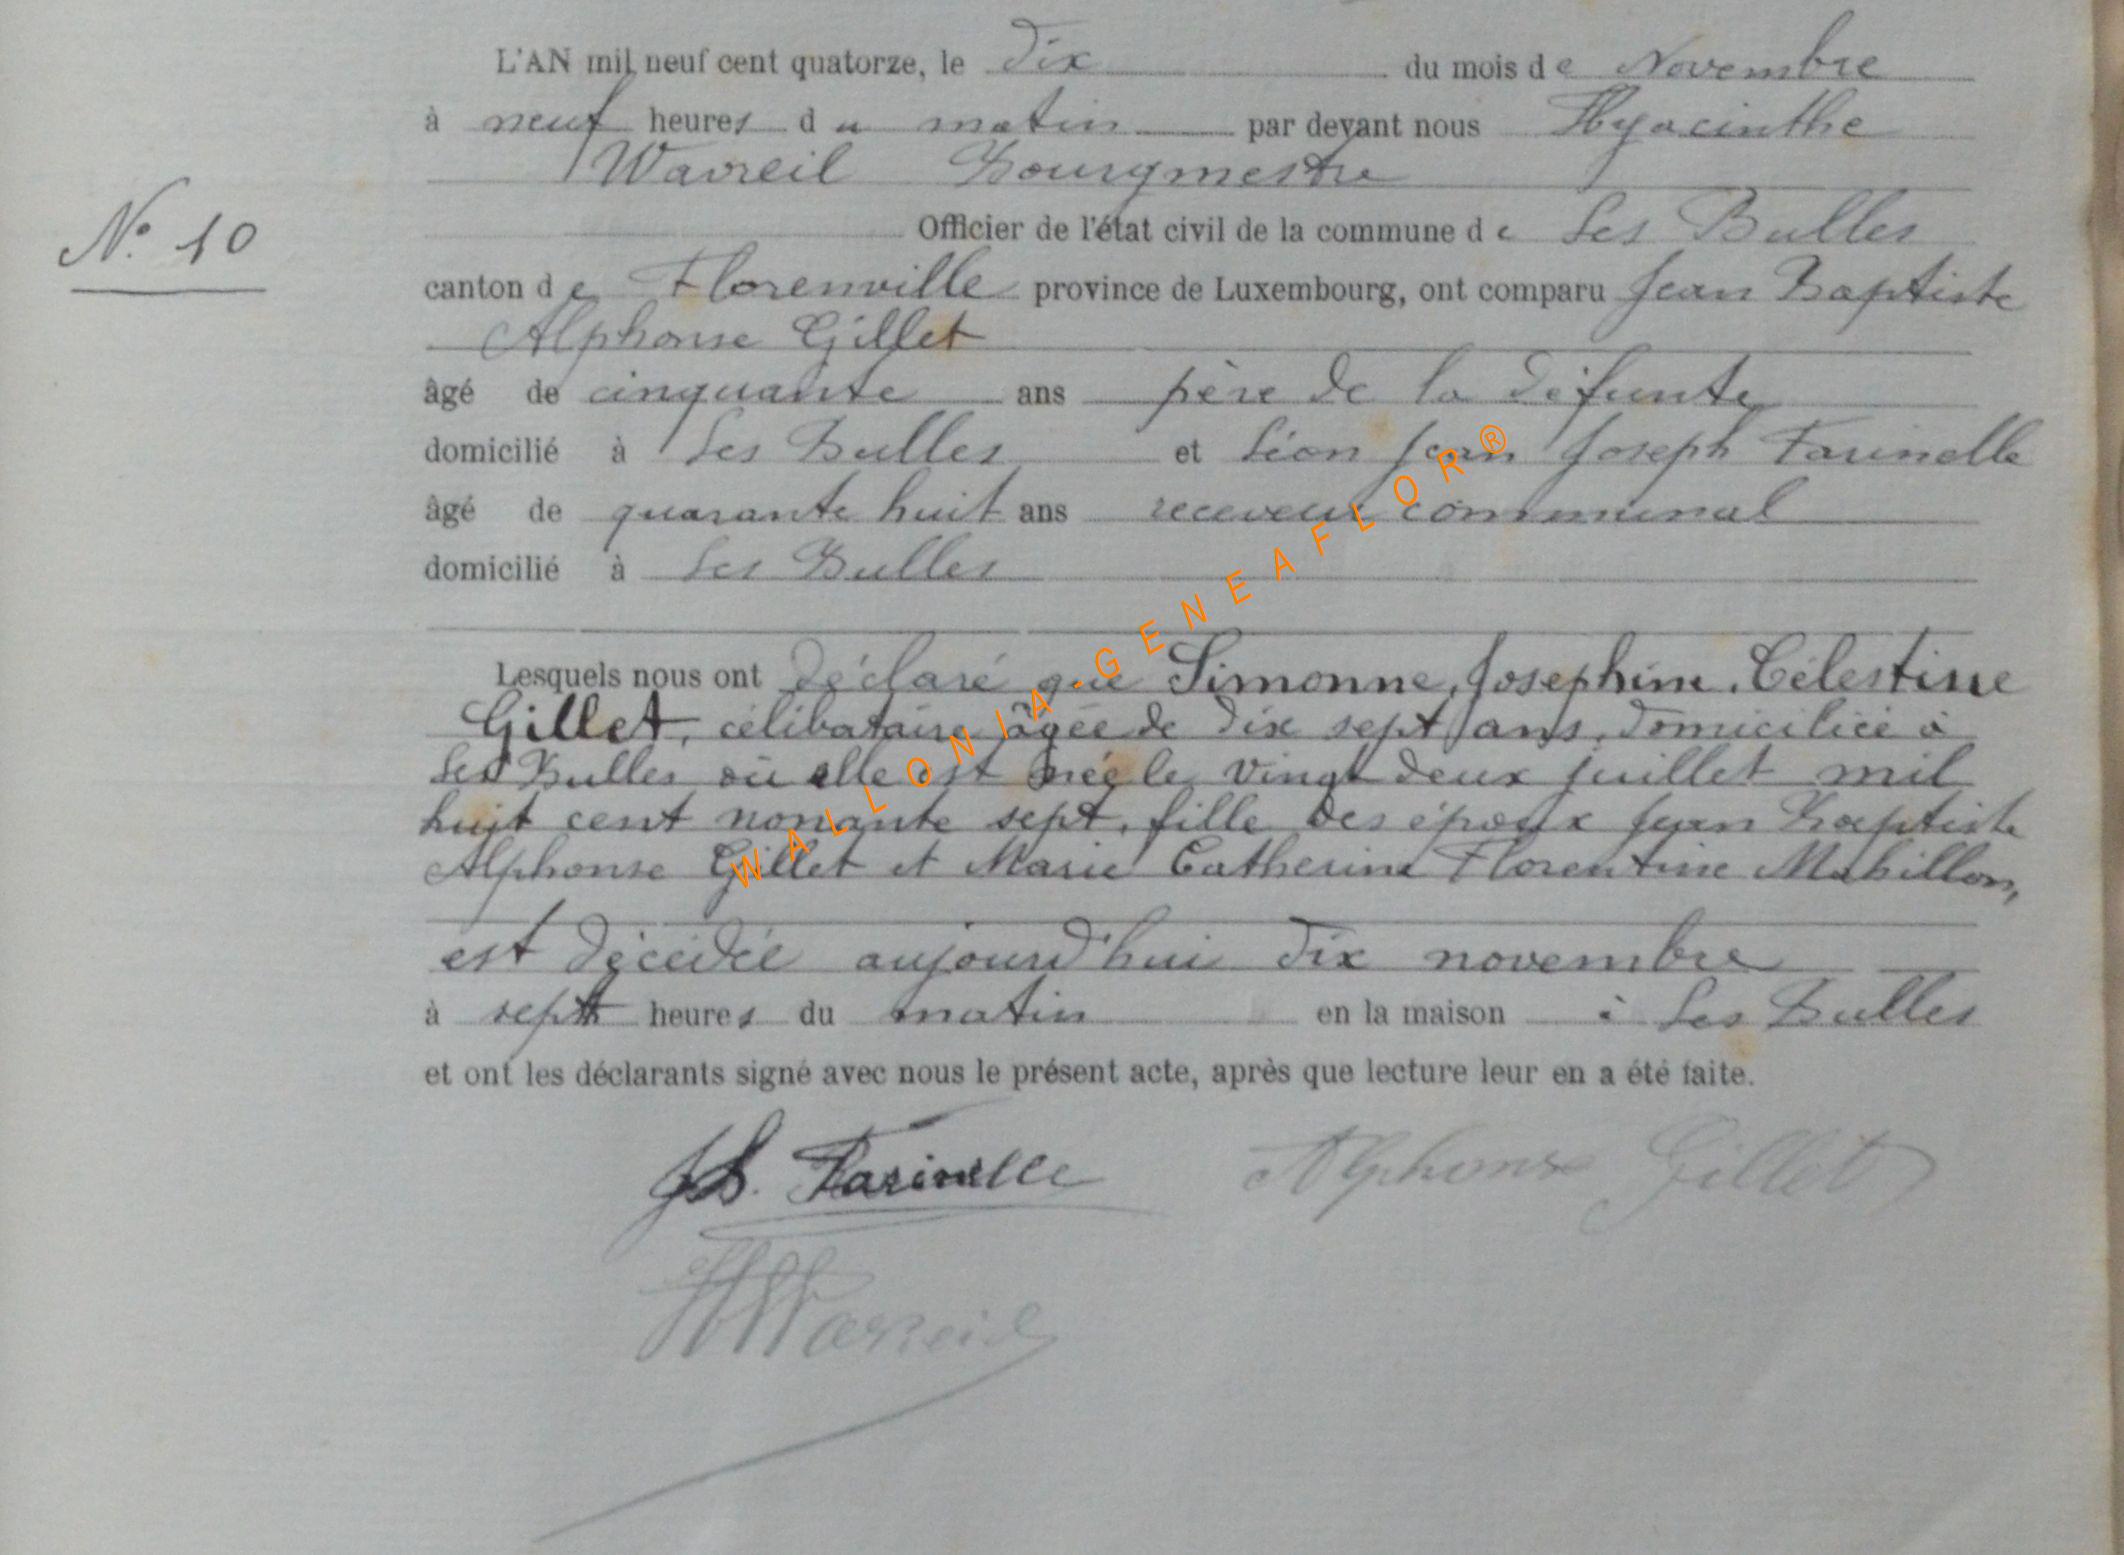 L'AN mil neuf cent quatorze, le dix du mois de Novembre
à neuf heures du matin par devant nous Hyacinthe
Wavreil Bourgmestre
N° 10
Officier de l'état civil de la commune de Les Bulles
canton de Florenville province de Luxembourg, ont comparu Jean Baptiste
Alphonse Gillet
âgé de cinquante ans père de la défunte
domicilié à Les Bulles et Léon Jean Joseph Farinelle
âgé de quarante huit ans receveur communal
domicilié à Les Bulles
Lesquels nous ont déclaré que Simonne, Josephine, Célestine
Gillet, célibataire âgée de dix sept ans, domiciliée à
Les Bulles où elle est née le vingt deux juillet mil
huit cent nonante sept, fille des époux Jean Baptiste
Alphonse Gillet et Marie Catherine Florentine Mabillon,
est décédée aujourd'hui dix novembre
à sept heures du matin en la maison à Les Bulles
et ont les déclarants signé avec nous le présent acte, après que lecture leur en a été faite.
Farinelle Alphonse Gillet
HWavreil
WALLONIA-GENEAFLOR®